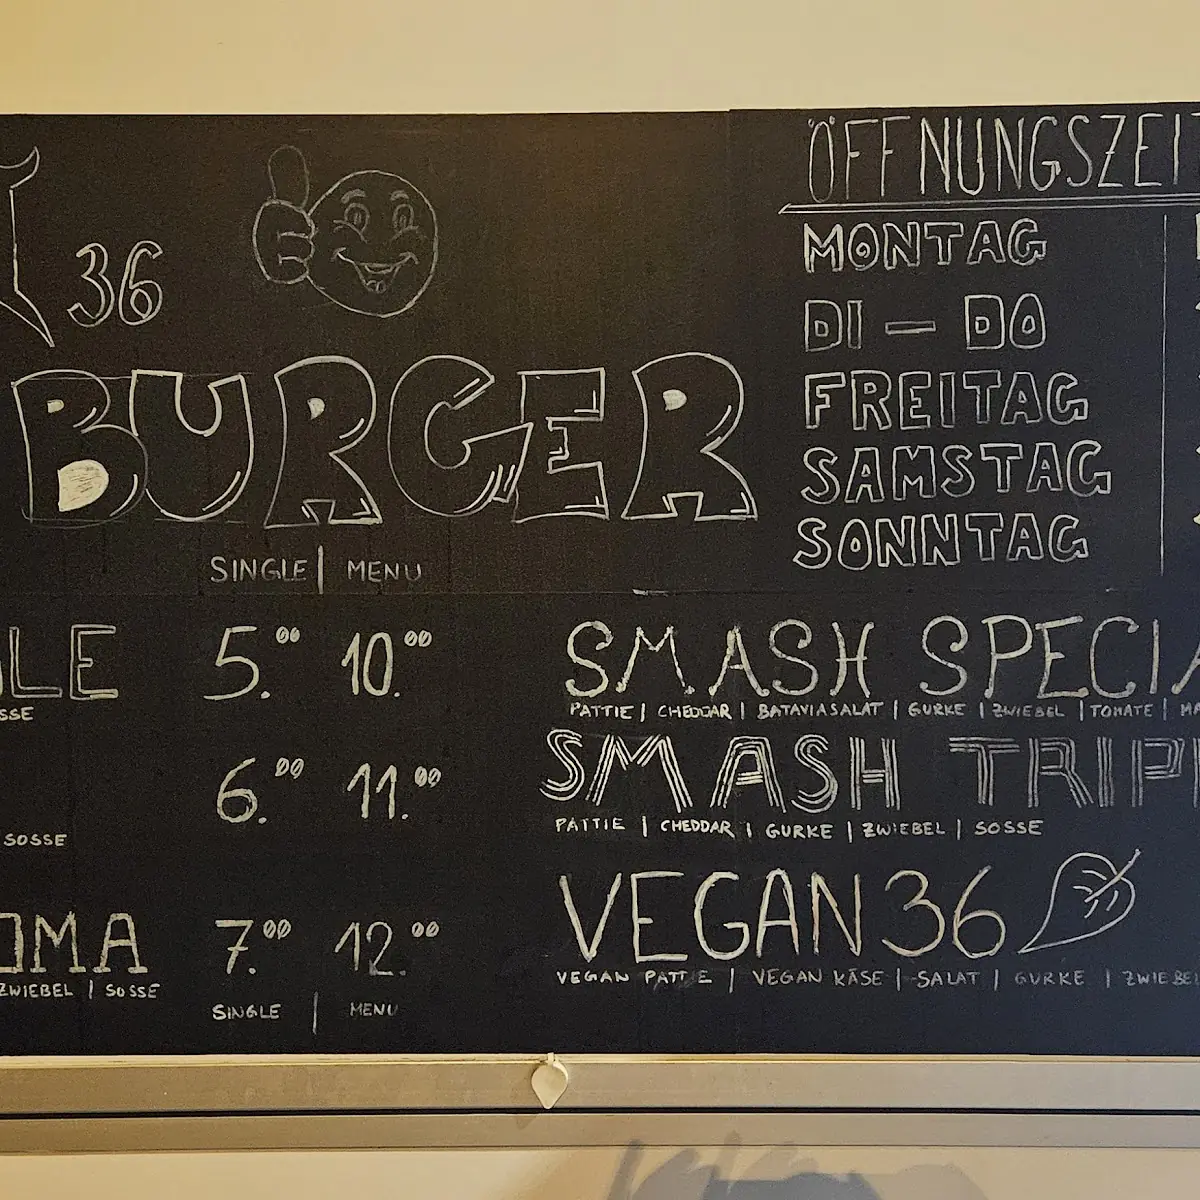 36
BURGER
SINGLE | MENU
LE 5.00 10.00
SSE
6.00 11.00
SOSSE
OMA 7.00 12.00
ZWIEBEL | SOSSE
SINGLE | MENU
ÖFFNUNGSZEIT
MONTAG
DI — DO
FREITAG
SAMSTAG
SONNTAG
SMASH SPECIA
PATTIE | CHEDDAR | BATAVIASALAT | GURKE | ZWIEBEL | TOMATE | MA
SMASH TRIPL
PATTIE | CHEDDAR | GURKE | ZWIEBEL | SOSSE
VEGAN 36
VEGAN PATTIE | VEGAN KÄSE | SALAT | GURKE | ZWIEBEL